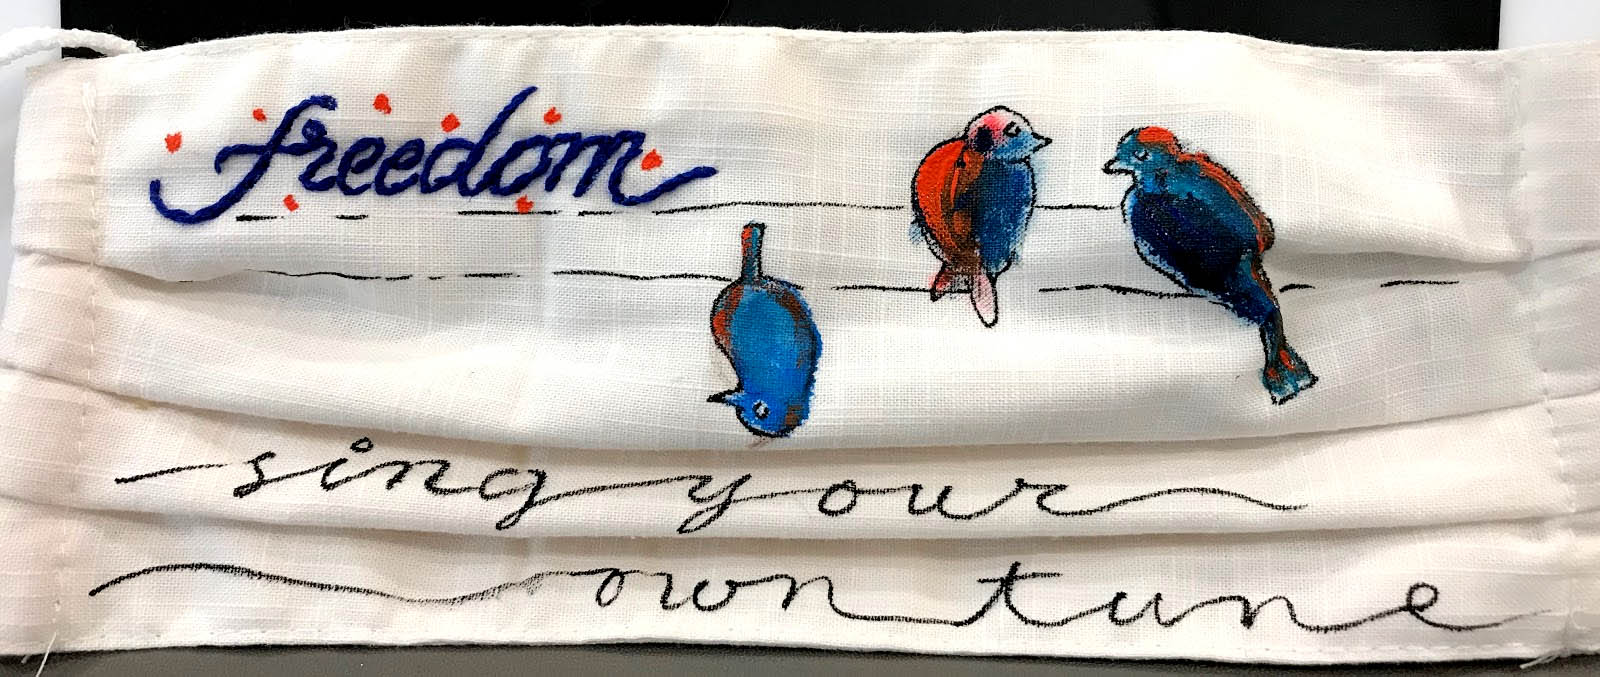 freedom
sing your
own tune